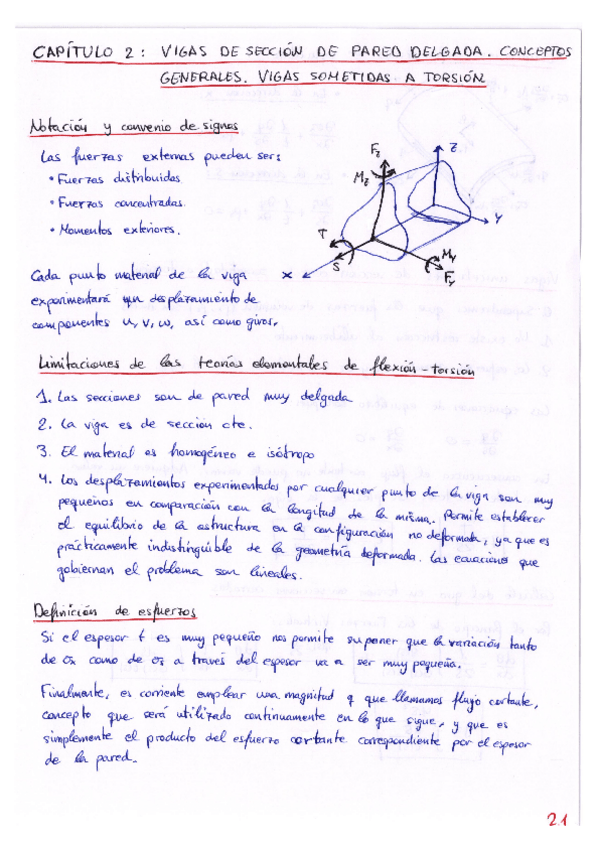 CAPÍTULO 2: VIGAS DE SECCIÓN DE PARED DELGADA. CONCEPTOS
GENERALES. VIGAS SOMETIDAS A TORSIÓN
Notación y convenio de signos
Las fuerzas externas pueden ser:
• Fuerzas distribuidas
• Fuerzas concentradas.
• Momentos exteriores.
Fz
Mz
Z
Y
T
S
X
My
Fy
Cada punto material de la viga
experimentará un desplazamiento de
componentes u, v, w, así como giros.
Limitaciones de las teorías elementales de flexión-torsión
1. Las secciones son de pared muy delgada
2. La viga es de sección cte.
3. El material es homogéneo e isótropo
4. Los desplazamientos experimentados por cualquier punto de la viga son muy
pequeños en comparación con la longitud de la misma. Permite establecer
el equilibrio de la estructura en la configuración no deformada, ya que es
prácticamente indistinguible de la geometría deformada. Las ecuaciones que
gobiernan el problema son lineales.
Definición de esfuerzos
Si el espesor t es muy pequeño nos permite suponer que la variación tanto
de σx como de σs a través del espesor va a ser muy pequeña.
Finalmente, es corriente emplear una magnitud q que llamamos flujo cortante,
concepto que será utilizado continuamente en lo que sigue, y que es
simplemente el producto del esfuerzo cortante correspondiente por el espesor
de la pared.
2.1